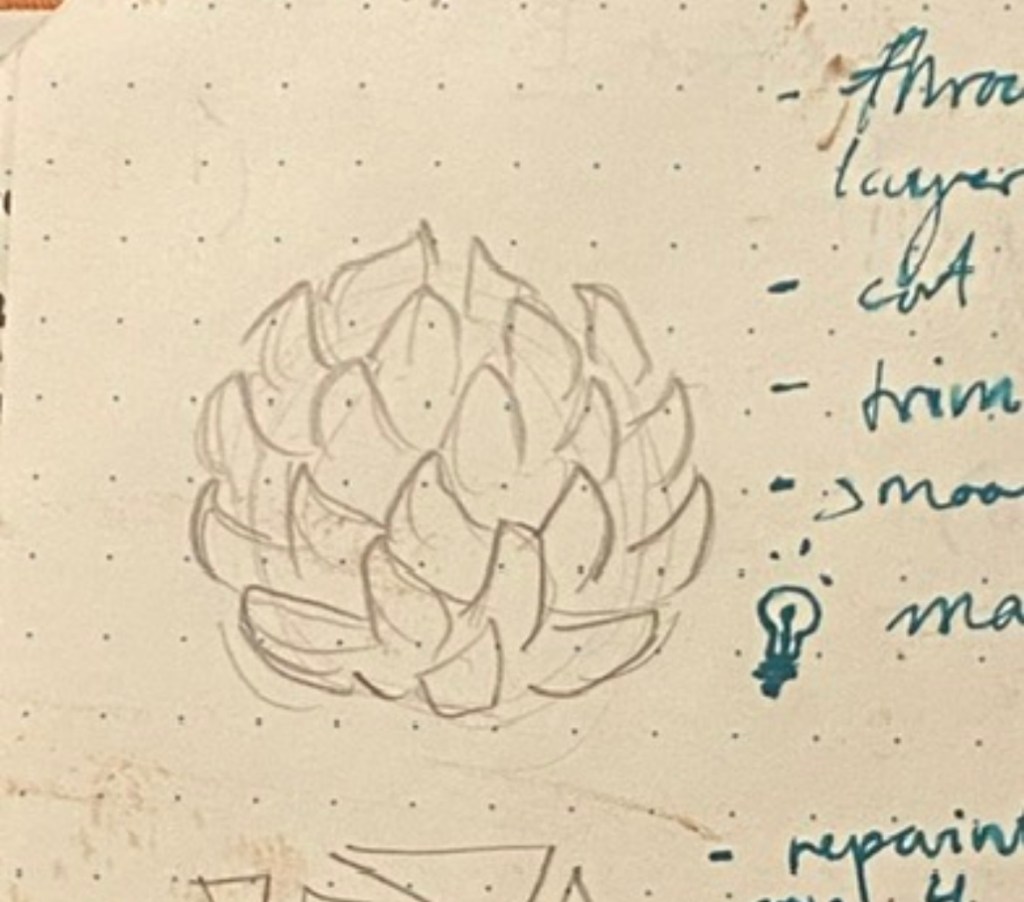 - throw
layer
- cut
- trim
- smoo
ma
- repaint